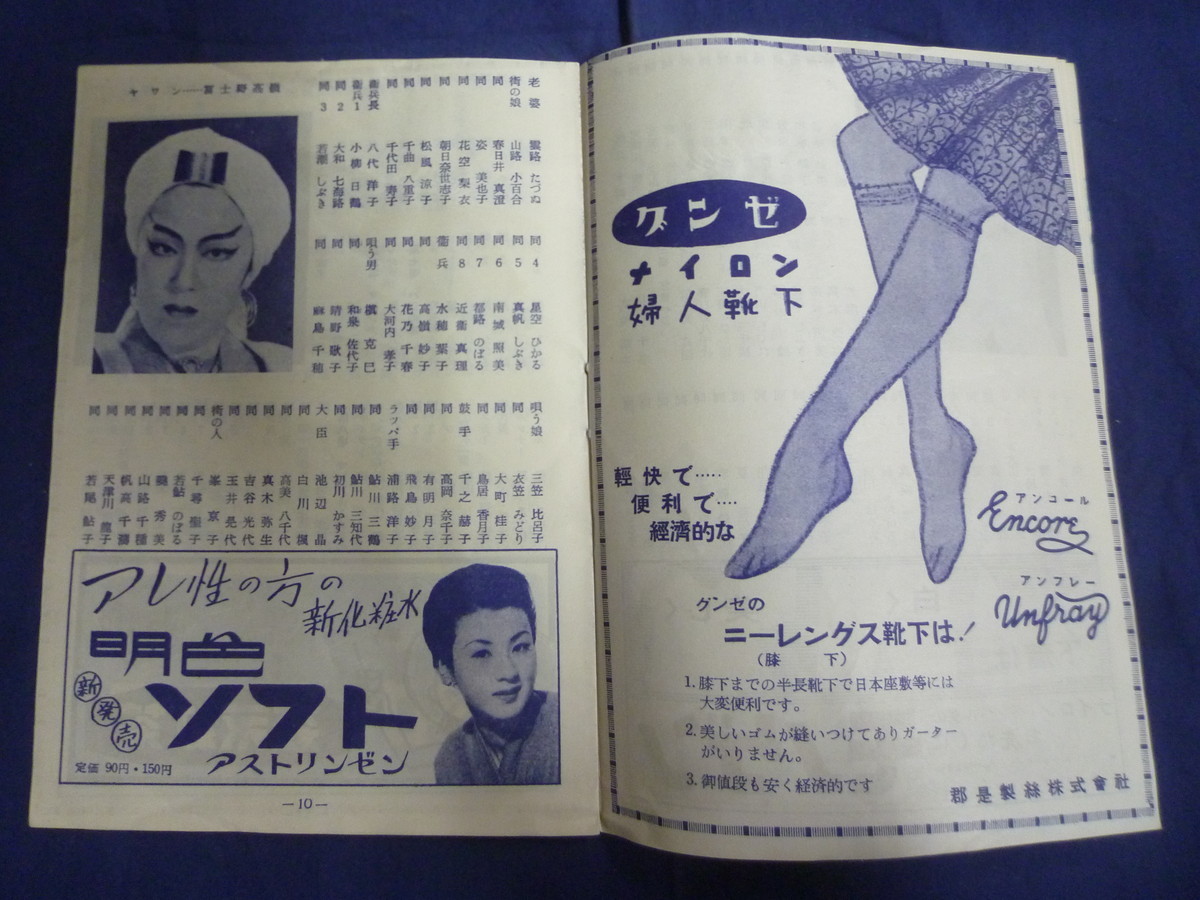 ヤサン――冨士野高嶺
老婆 雲路 たづぬ
街の娘 山路 小百合
同 春日井 真澄
同 姿 美也子
同 花空 梨衣
同 朝日奈世志子
同 松風 涼子
同 千曲 八重子
同 千代田 寿子
衛兵長 八代 洋子
衛兵1 小柳 日鶴
同2 大和 七海路
同3 若瀬 しぶき
同4 星空 ひかる
同5 真帆 しぶき
同6 南城 照美
同7 都路 のぼる
同8 近衛 真理
衛兵 水穂 葉子
同 高嶺 妙子
同 花乃 千春
同 大河内 孝子
唄う男 槇 克巳
同 和泉 佐代子
同 晴野 歌子
同 麻島 千穂
唄う娘 三笠 比呂子
同 衣笠 みどり
同 大町 桂子
同 鳥居 香月子
鼓手 千之 赫子
同 高岡 奈千子
同 有明 月子
同 飛鳥 妙子
ラッパ手 浦路 洋子
同 鮎川 三鶴
同 鮎川 三知代
同 初川 かすみ
大臣 池辺 晶
同 白川 楓
同 高美 八千代
同 真木 弥生
同 吉谷 光代
同 玉井 是代
街の人 峯 京子
同 千尋 聖子
同 若鮎 のぼる
同 秀美
同 山路 千種
同 帆高 千彌
同 天津川 龍子
同 若尾 鮎子
アレ性の方の
新化粧水
明色
新発売
ソフト
アストリンゼン
定価 90円・150円
―10―
グンゼ
ナイロン
婦人靴下
輕快で‥‥
便利で‥‥
經済的な
アンコール
Encore
アンフレー
Unfray
グンゼの
ニーレングス靴下は!
(膝下)
1. 膝下までの半長靴下で日本座敷等には
大変便利です。
2. 美しいゴムが縫いつけてありガーター
がいりません。
3. 御値段も安く経済的です
郡是製絲株式會社